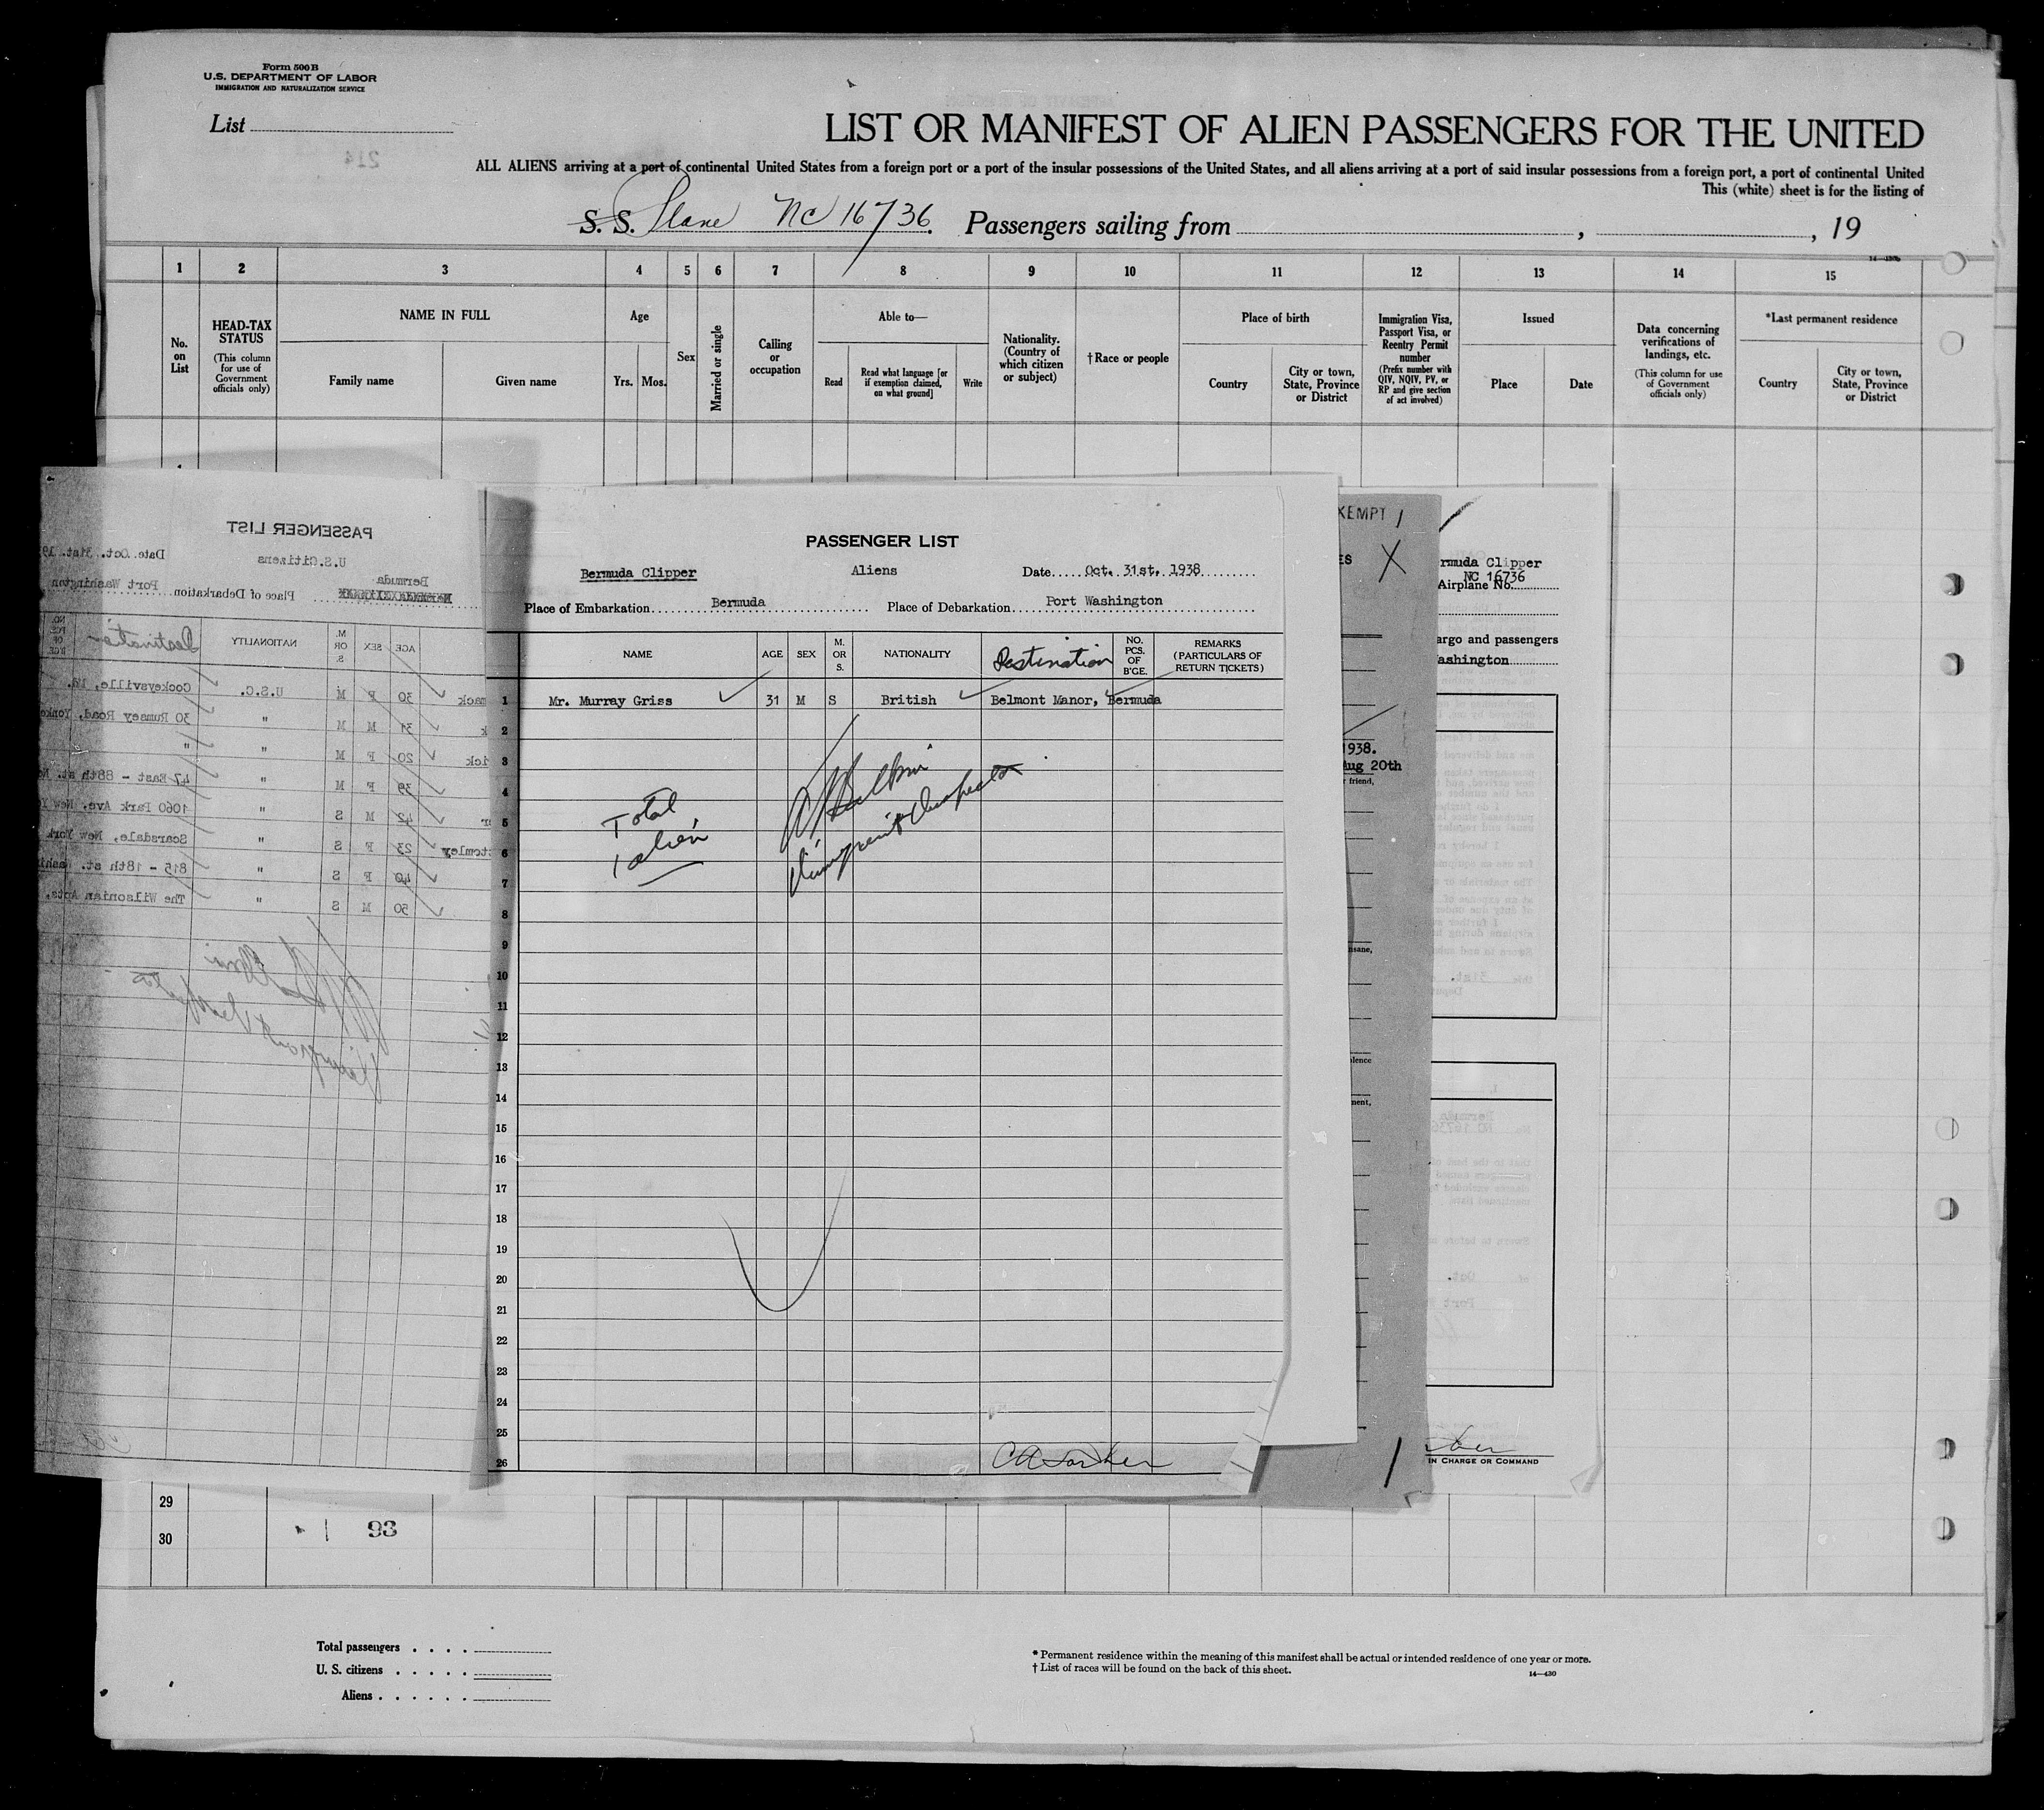 Form 500 B
U.S. DEPARTMENT OF LABOR
IMMIGRATION AND NATURALIZATION SERVICE
List
214
LIST OR MANIFEST OF ALIEN PASSENGERS FOR THE UNITED
ALL ALIENS arriving at a port of continental United States from a foreign port or a port of the insular possessions of the United States, and all aliens arriving at a port of said insular possessions from a foreign port, a port of continental United
This (white) sheet is for the listing of
S. S. Plane NC 16736. Passengers sailing from , , 19
14—1805
1 2 3 4 5 6 7 8 9 10 11 12 13 14 15
No. on List
HEAD-TAX STATUS
(This column for use of Government officials only)
NAME IN FULL
Family name Given name
Age
Yrs. Mos.
Sex
Married or single
Calling or occupation
Able to—
Read
Read what language [or if exemption claimed, on what ground]
Write
Nationality. (Country of which citizen or subject)
†Race or people
Place of birth
Country
City or town, State, Province or District
Immigration Visa, Passport Visa, or Reentry Permit number
(Prefix number with QIV, NQIV, PV, or RP and give section of act involved)
Issued
Place Date
Data concerning verifications of landings, etc.
(This column for use of Government officials only)
*Last permanent residence
Country
City or town, State, Province or District
PASSENGER LIST
U.S.Citizens
Date Oct. 31st. 19
Bermuda
Place of Debarkation Port Washington
AGE SEX M. OR S. NATIONALITY Destination NO. PCS. OF B'GE.
mack 30 F M U.S.C. Cockeysville, Md.
k 31 M M " 30 Rumsey Road, Yonke
ick 20 F M " "
39 F M " 47 East - 88th st. Ne
r 42 M S " 1060 Park Ave, New Y
ttomley 23 F S " Scarsdale, New York
40 F S " 815 - 18th st. Washi
50 M S " The Wilsonian Apts,
PASSENGER LIST
Bermuda Clipper Aliens Date Oct. 31st. 1938
Place of Embarkation Bermuda Place of Debarkation Port Washington
NAME AGE SEX M. OR S. NATIONALITY Destination NO. PCS. OF B'GE. REMARKS (PARTICULARS OF RETURN TICKETS)
1 Mr. Murray Griss 31 M S British Belmont Manor, Bermuda
2
3
4
5
6
7
8
9
10
11
12
13
14
15
16
17
18
19
20
21
22
23
24
25
26
Total
1 alien
Immigrant Inspector
XEMPT 1
ES
X
1938.
Aug 20th
friend,
nsane,
lence
ment,
rmuda Clipper
NC 16736
Airplane No.
argo and passengers
ashington
31st.
Bermuda
NC 16736
Oct.
Port W
IN CHARGE OR COMMAND
29
30
1 93
Total passengers
U. S. citizens
Aliens
* Permanent residence within the meaning of this manifest shall be actual or intended residence of one year or more.
† List of races will be found on the back of this sheet.
14—430